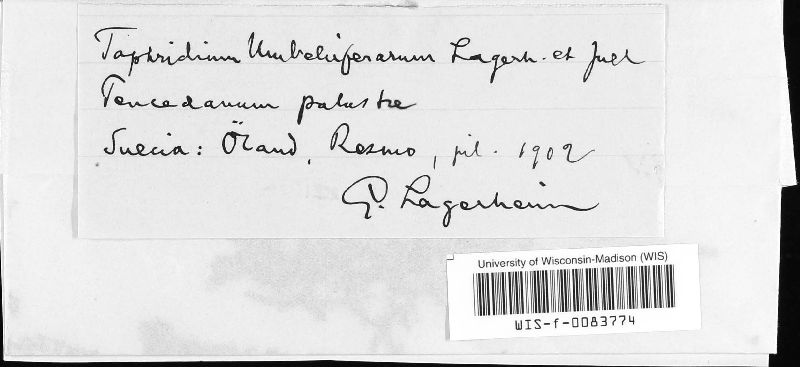 Taphridium Umbelliferarum Lagerh. et Juel
Peucedanum palustre
Suecia: Öland, Resmo, jul. 1902
G. Lagerheim
University of Wisconsin-Madison (WIS)
WIS-f-0083774